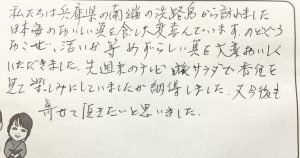 私たちは兵庫県の南端の淡路島から訪れました
日本海のおいしい魚を食し大変喜んでいます。のどぐろ
あこせ、活いか等めずらしい魚を大変おいしく
いただきました。先週末のテレビ 旅サラダで香住を
見て楽しみにしていましたが納得しました。又今後も
寄せて頂きたいと思いました。